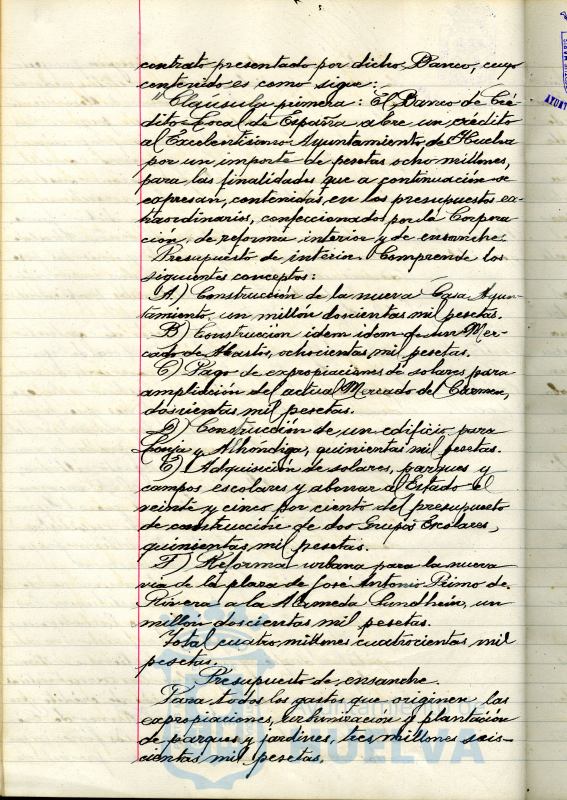 contrato presentado por dicho Banco, cuyo
contenido es como sigue:
"Cláusula primera: El Banco de Cré-
dito Local de España abre un crédito
al Excelentísimo Ayuntamiento de Huelva
por un importe de pesetas ocho millones,
para las finalidades que a continuación se
expresan, contenidas en los presupuestos ex-
traordinarios, confeccionados por la Corpora-
ción, de reforma interior y de ensanche:
Presupuesto de interior. Comprende los
siguientes conceptos:
A) Construcción de la nueva Casa Ayun-
tamiento, un millón doscientas mil pesetas.
B) Construcción idem idem de un Mer-
cado de Abastos, ochocientas mil pesetas.
C) Pago de expropiaciones de solares para
ampliación del actual Mercado del Carmen,
doscientas mil pesetas.
D) Construcción de un edificio para
Lonja y Alhóndiga, quinientas mil pesetas.
E) Adquisición de solares, parques y
campos escolares y abonar al Estado el
veinte y cinco por ciento del presupuesto
de construcción de dos Grupos Escolares,
quinientas mil pesetas.
F) Reforma urbana para la nueva
vía de la plaza de José Antonio Primo de
Rivera a la Alameda Sundhein, un
millón doscientas mil pesetas.
Total cuatro millones cuatrocientas mil
pesetas.
Presupuesto de ensanche.
Para todos los gastos que originen las
expropiaciones, urbanización y plantación
de parques y jardines, tres millones seis-
cientas mil pesetas.
Ayuntamiento de
HUELVA